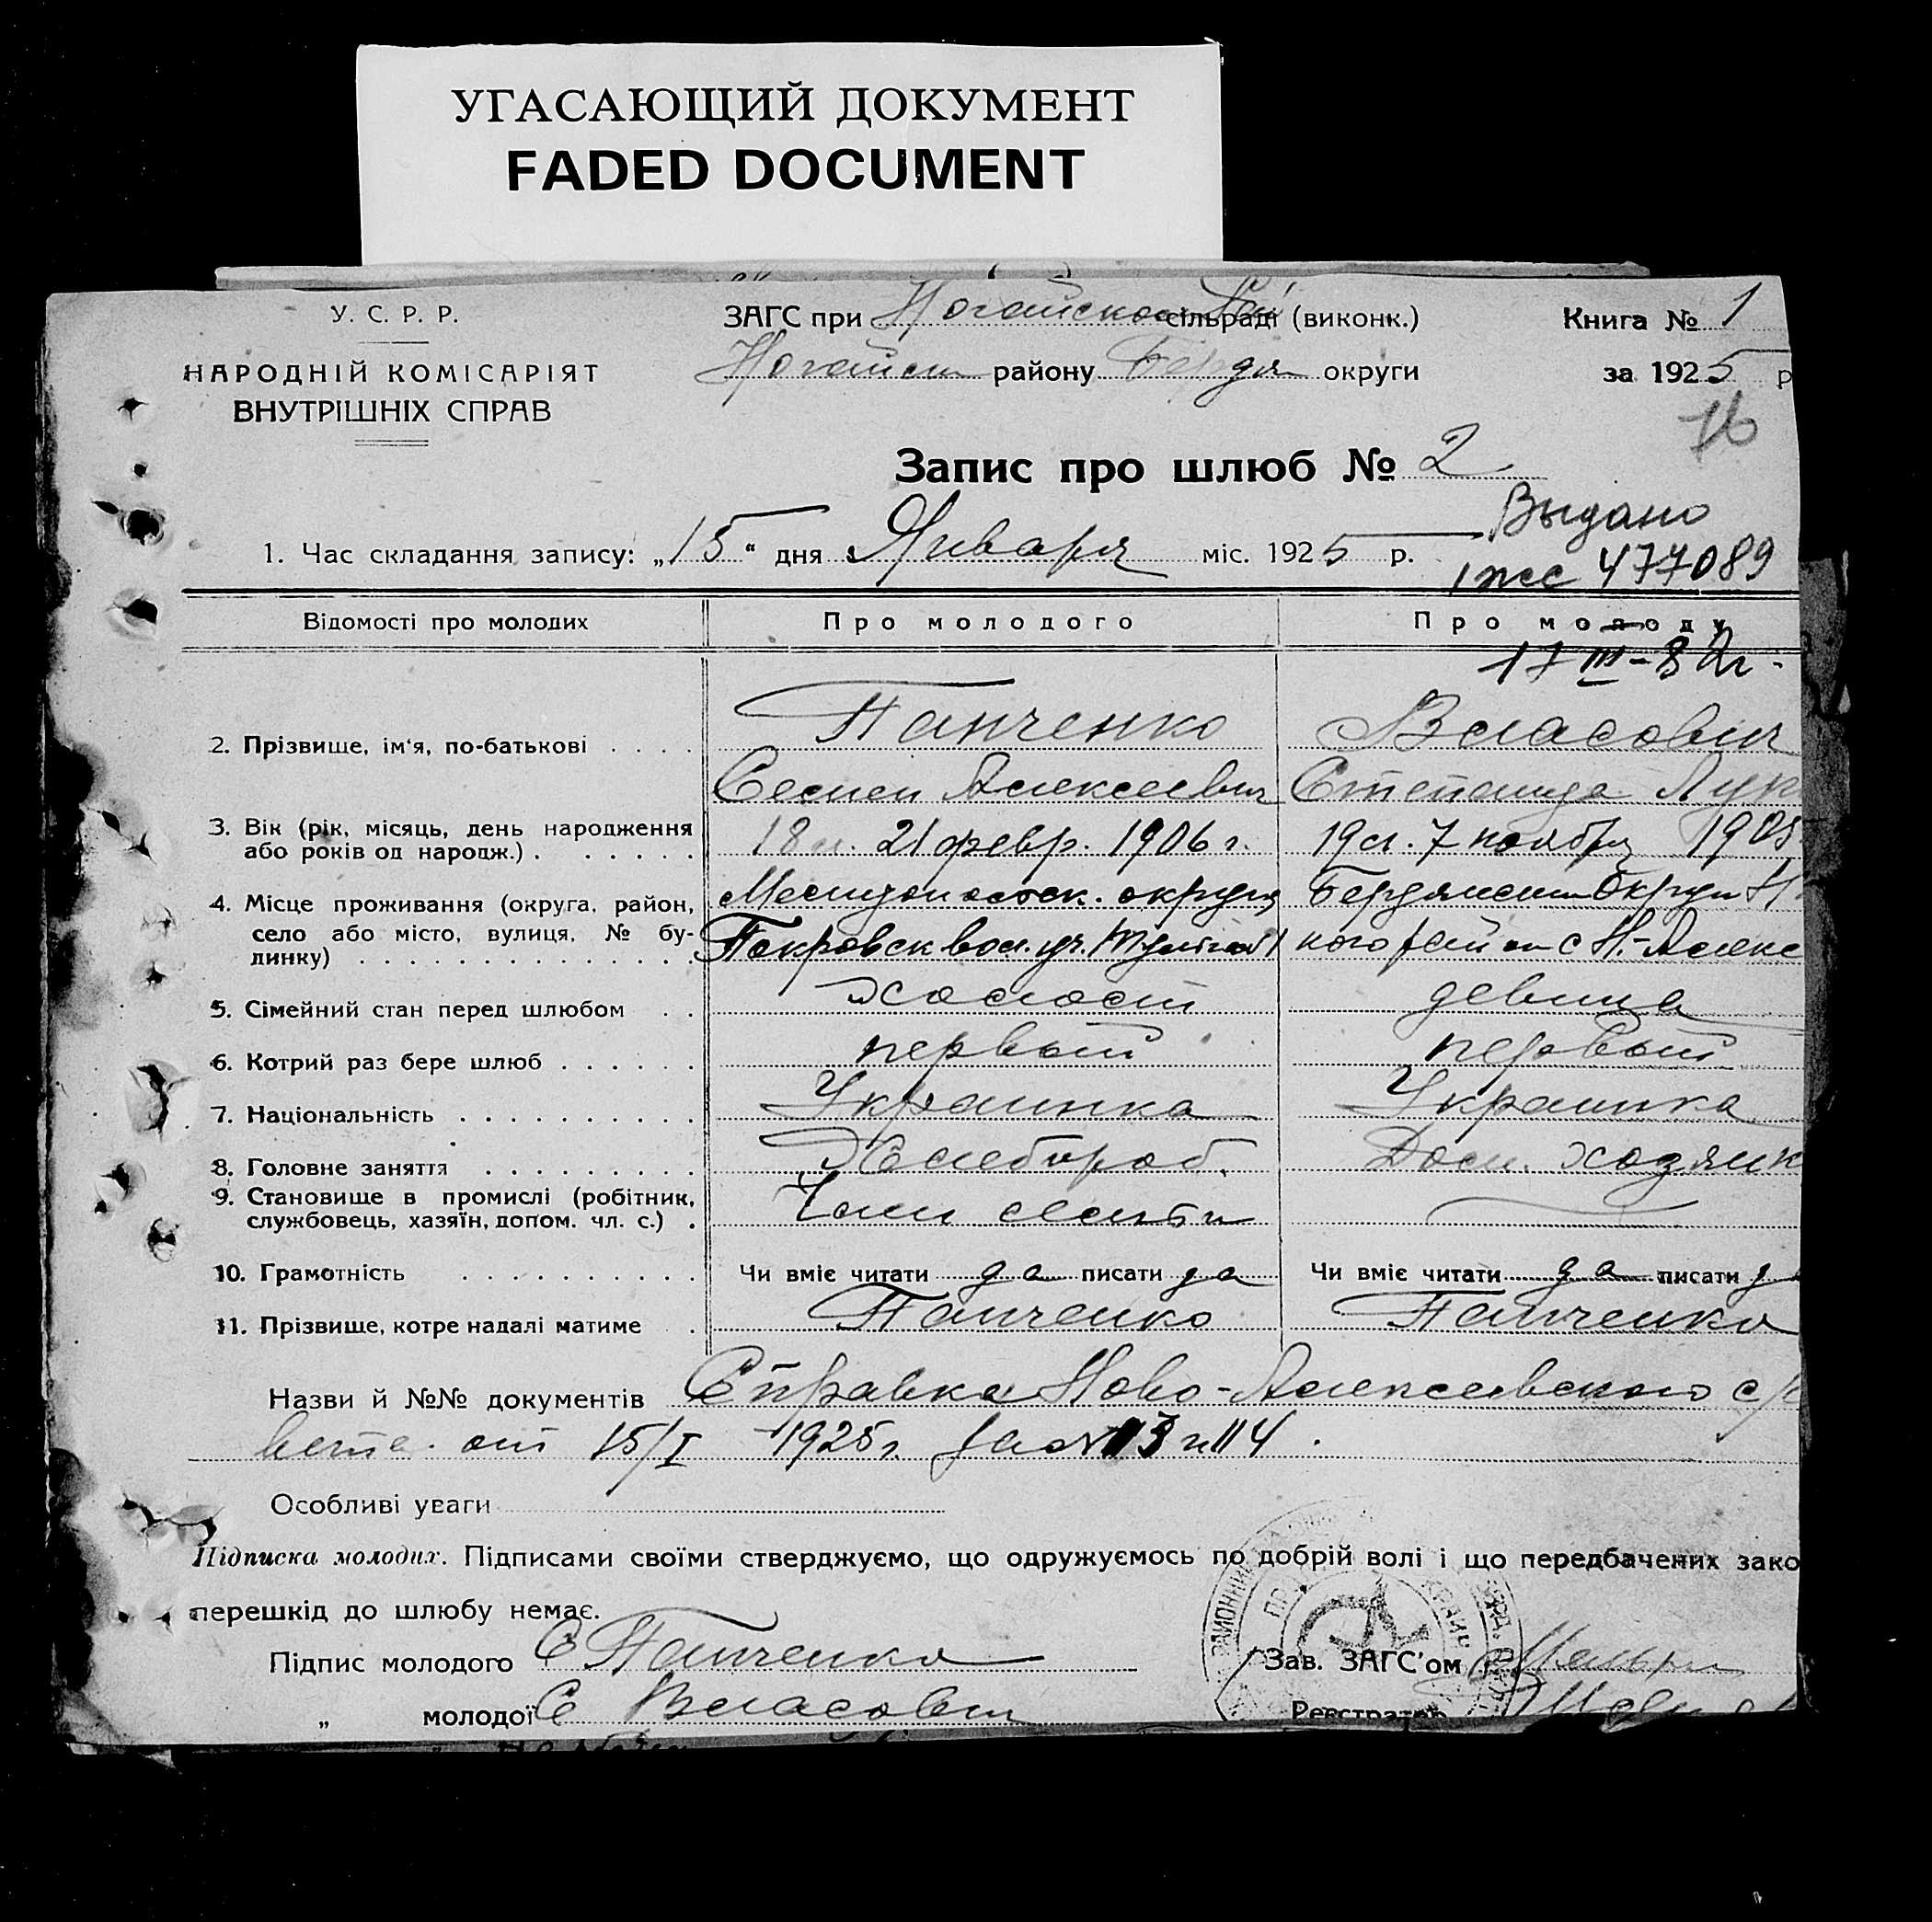 УГАСАЮЩИЙ ДОКУМЕНТ
FADED DOCUMENT
У. С. Р. Р.
НАРОДНІЙ КОМІСАРІЯТ
ВНУТРІШНІХ СПРАВ
ЗАГС при Ногайском сільраді (виконк.)
Ногайск району Бердян округи
Книга № 1
за 1925 р
16
Запис про шлюб № 2
Выдано
1. Час складання запису: „15" дня Января міс. 1925 р.
477089
Відомості про молодих Про молодого Про молоду
17 III-82г.
2. Прізвище, ім'я, по-батькові . . . . Панченко Власович
Семен Алексеевич Степанида Лук
3. Вік (рік, місяць, день народження або років од народж.) . . . . . . 18 л. 21 февр. 1906 г. 19 л. 7 ноября 1905
4. Місце проживання (округа, район, село або місто, вулиця, № будинку) . . . . . . . . . . . . . . Мелитопольск. округ Покровск вол. Бердянский округ Н
кого район с Н.-Алекс
5. Сімейний стан перед шлюбом . . холост девица
6. Котрий раз бере шлюб . . . . . . первый первый
7. Національність . . . . . . . . . . Украинка Украинка
8. Головне заняття . . . . . . . . . Хлебороб. Дом. хозяйк
9. Становище в промислі (робітник, службовець, хазяїн, допом. чл. с.) . Член семьи
10. Грамотність . . . . . . . . . . Чи вміє читати да писати да Чи вміє читати да писати д
11. Прізвище, котре надалі матиме . Панченко Панченко
Назви й №№ документів Справка Ново-Алексеевского с/с
вета от 15/I 1925 г. за № 113 и 114.
Особливі уваги
Підписка молодих. Підписами своїми стверджуємо, що одружуємось по добрій волі і що передбачених зако
перешкід до шлюбу немає.
Підпис молодого С Панченко
Зав. ЗАГС'ом
„ молодої С Власович
Реєстратор